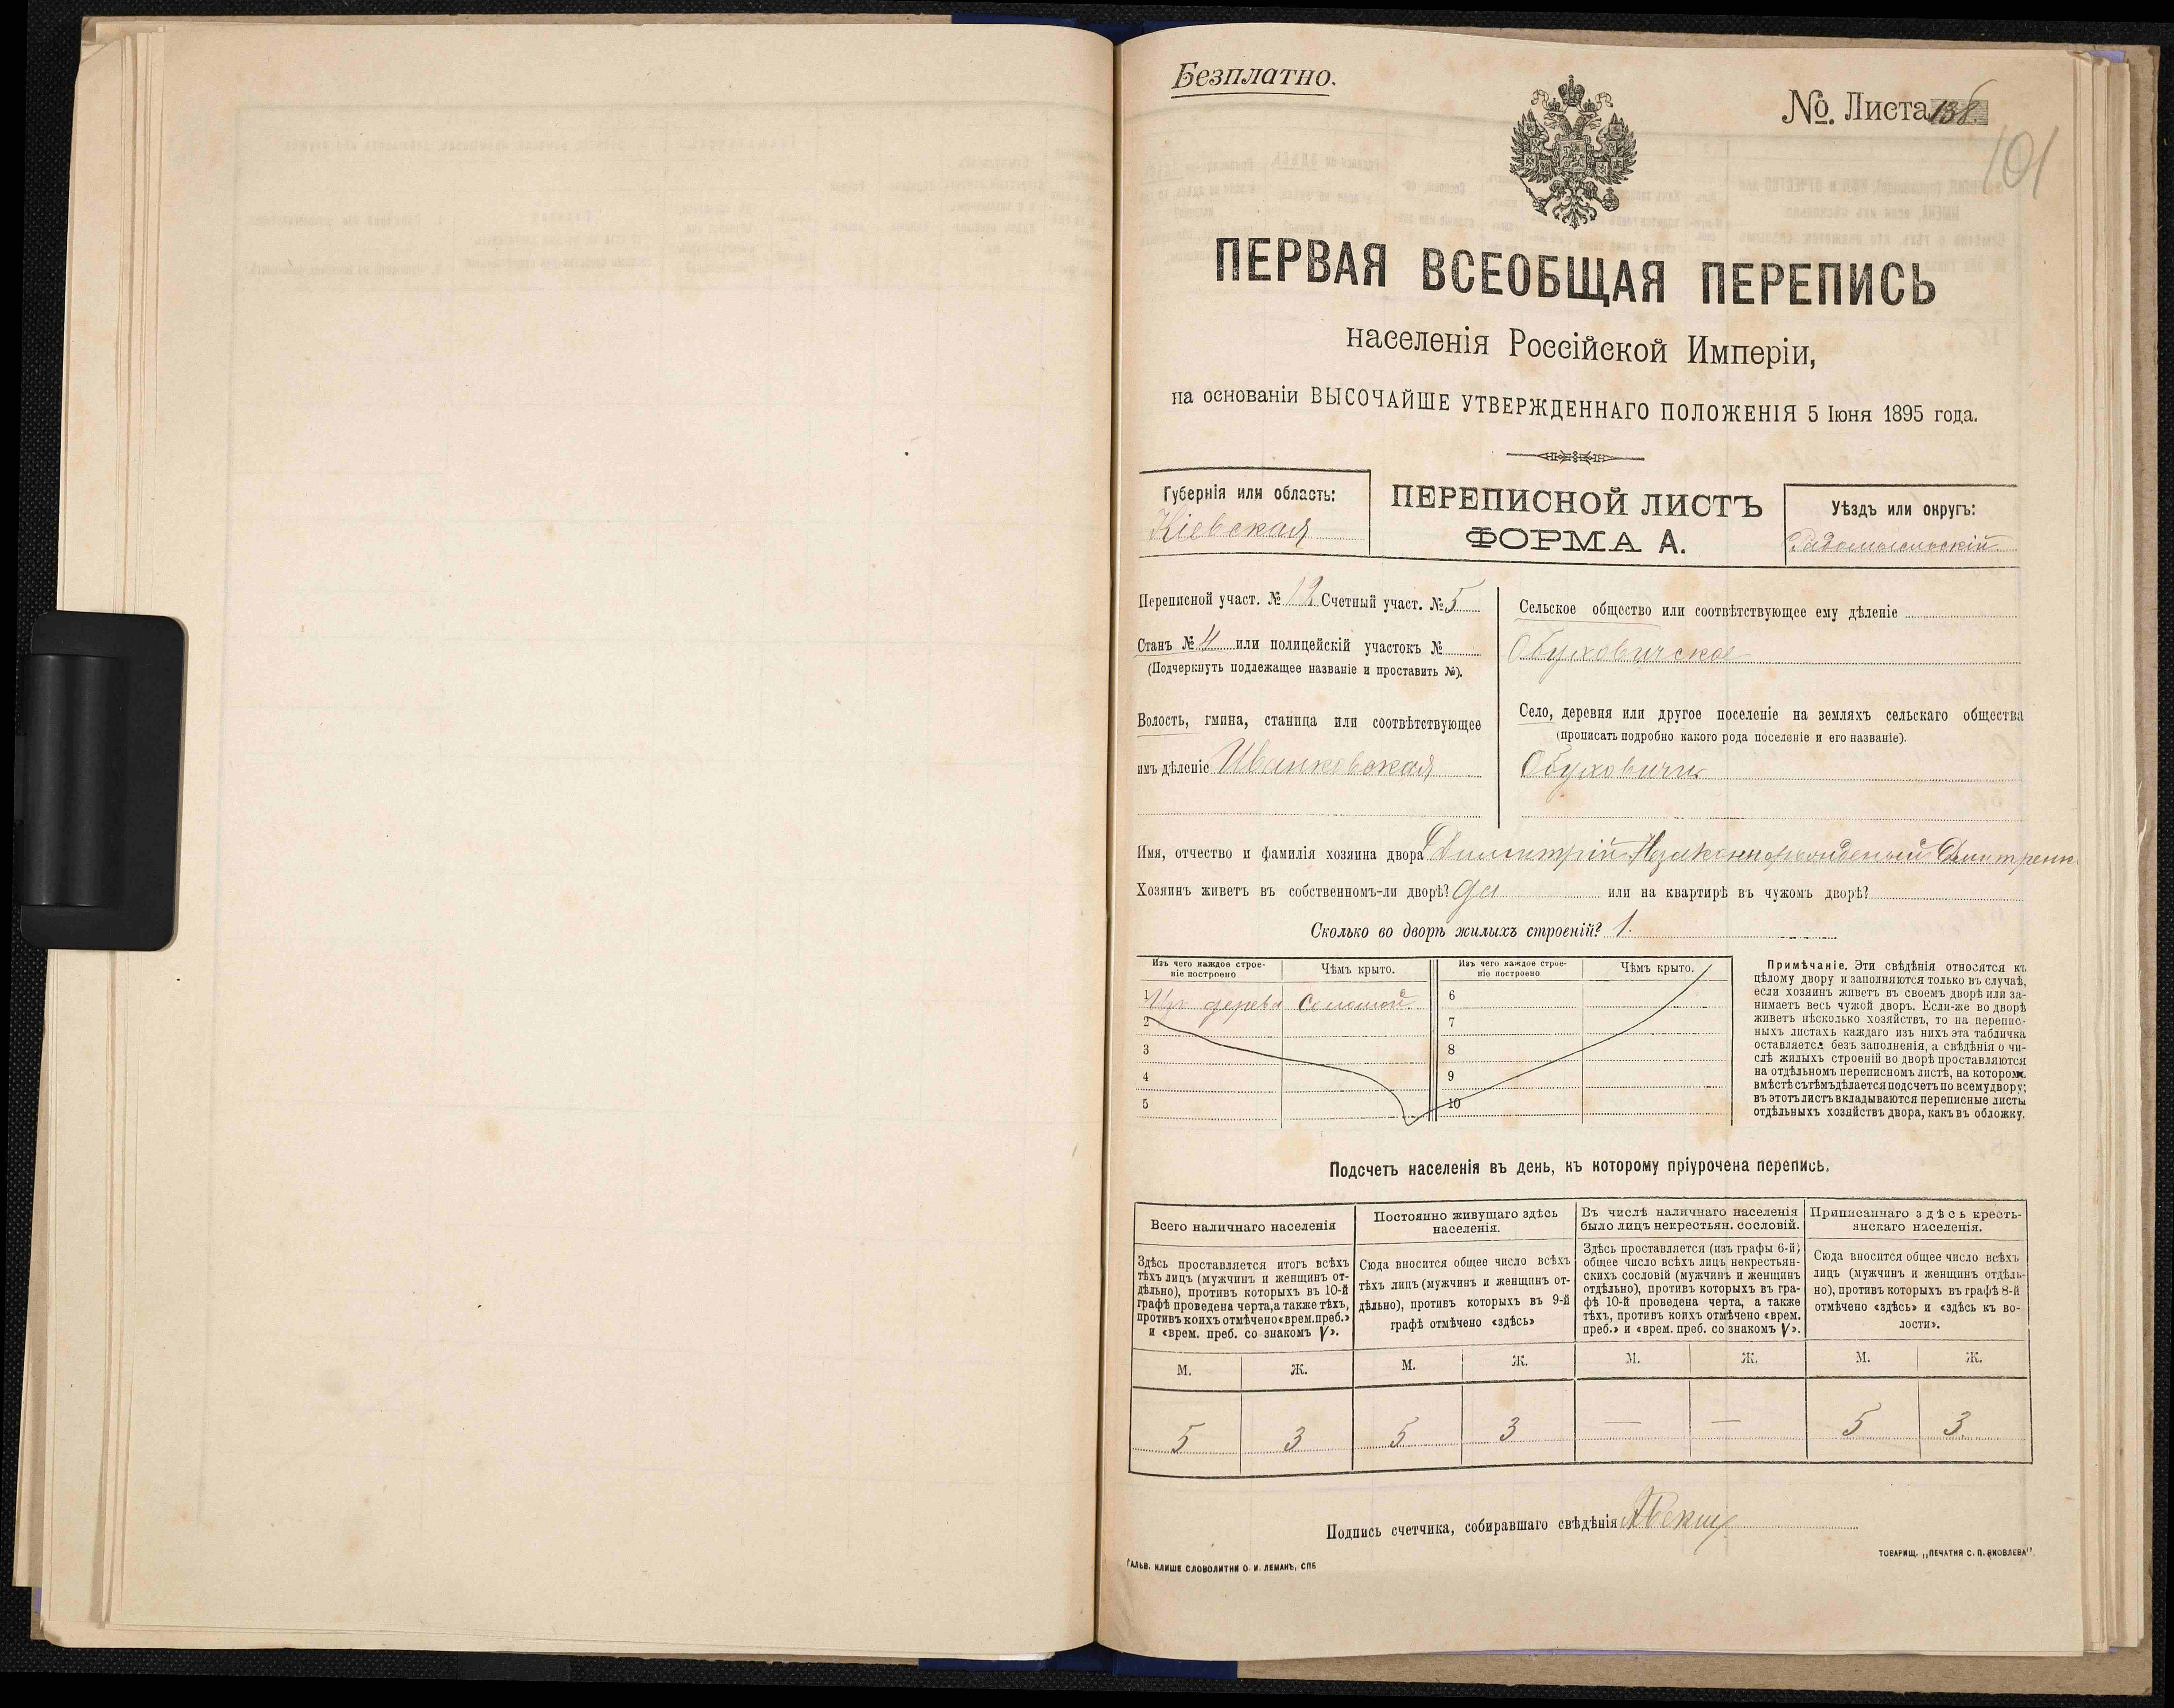 Безплатно.
No. Листа 138.
101
ПЕРВАЯ ВСЕОБЩАЯ ПЕРЕПИСЬ
населенія Россійской Имперіи,
на основаніи ВЫСОЧАЙШЕ УТВЕРЖДЕННАГО ПОЛОЖЕНІЯ 5 Іюня 1895 года.
Губернія или область:
Кіевская
ПЕРЕПИСНОЙ ЛИСТЪ
ФОРМА А.
Уѣздъ или округъ:
Радомысльскій
Переписной участ. № 12 Счетный участ. № 5
Станъ № 4 или полицейскій участокъ №
(Подчеркнуть подлежащее названіе и проставить №).
Волость, гмина, станица или соотвѣтствующее
имъ дѣленіе Иванковская
Сельское общество или соотвѣтствующее ему дѣленіе
Обуховичское
Село, деревня или другое поселеніе на земляхъ сельскаго общества
(прописать подробно какого рода поселеніе и его названіе).
Обуховичи
Имя, отчество и фамилія хозяина двора Димитрій Незаконнорожденный Дмитренк
Хозяинъ живетъ въ собственномъ-ли дворѣ? Да или на квартирѣ въ чужомъ дворѣ?
Сколько во дворѣ жилыхъ строеній? 1.
Изъ чего каждое строе-
ніе построено
Чѣмъ крыто.
Изъ чего каждое строе-
ніе построено
Чѣмъ крыто.
1 Изъ дерева Соломой 6
2 7
3 8
4 9
5 10
Примѣчаніе. Эти свѣдѣнія относятся къ
цѣлому двору и заполняются только въ случаѣ,
если хозяинъ живетъ въ своемъ дворѣ или за-
нимаетъ весь чужой дворъ. Если-же во дворѣ
живетъ нѣсколько хозяйствъ, то на перепис-
ныхъ листахъ каждаго изъ нихъ эта табличка
оставляется безъ заполненія, а свѣдѣнія о чи-
слѣ жилыхъ строеній во дворѣ проставляются
на отдѣльномъ переписномъ листѣ, на которомъ
вмѣстѣ съ тѣмъ дѣлается подсчетъ по всему двору;
въ этотъ листъ вкладываются переписные листы
отдѣльныхъ хозяйствъ двора, какъ въ обложку.
Подсчетъ населенія въ день, къ которому пріурочена перепись.
Всего наличнаго населенія
Здѣсь проставляется итогъ всѣхъ
тѣхъ лицъ (мужчинъ и женщинъ от-
дѣльно), противъ которыхъ въ 10-й
графѣ проведена черта, а также тѣхъ,
противъ коихъ отмѣчено «врем. преб.»
и «врем. преб. со знакомъ V».
Постоянно живущаго здѣсь
населенія.
Сюда вносится общее число всѣхъ
тѣхъ лицъ (мужчинъ и женщинъ от-
дѣльно), противъ которыхъ въ 9-й
графѣ отмѣчено «здѣсь»
Въ числѣ наличнаго населенія
было лицъ некрестьян. сословій.
Здѣсь проставляется (изъ графы 6-й)
общее число всѣхъ лицъ некрестьян-
скихъ сословій (мужчинъ и женщинъ
отдѣльно), противъ которыхъ въ гра-
фѣ 10-й проведена черта, а также
тѣхъ, противъ коихъ отмѣчено «врем.
преб.» и «врем. преб. со знакомъ V».
Приписаннаго здѣсь кресть-
янскаго населенія.
Сюда вносится общее число всѣхъ
лицъ (мужчинъ и женщинъ отдѣль-
но), противъ которыхъ въ графѣ 8-й
отмѣчено «здѣсь» и «здѣсь къ во-
лости».
М. Ж. М. Ж. М. Ж. М. Ж.
5 3 5 3 — — 5 3.
Подпись счетчика, собиравшаго свѣдѣнія
ГАЛЬВ. КЛИШЕ СЛОВОЛИТНИ О. И. ЛЕМАНЪ, СПБ
ТОВАРИЩ. „ПЕЧАТНЯ С. П. ЯКОВЛЕВА"